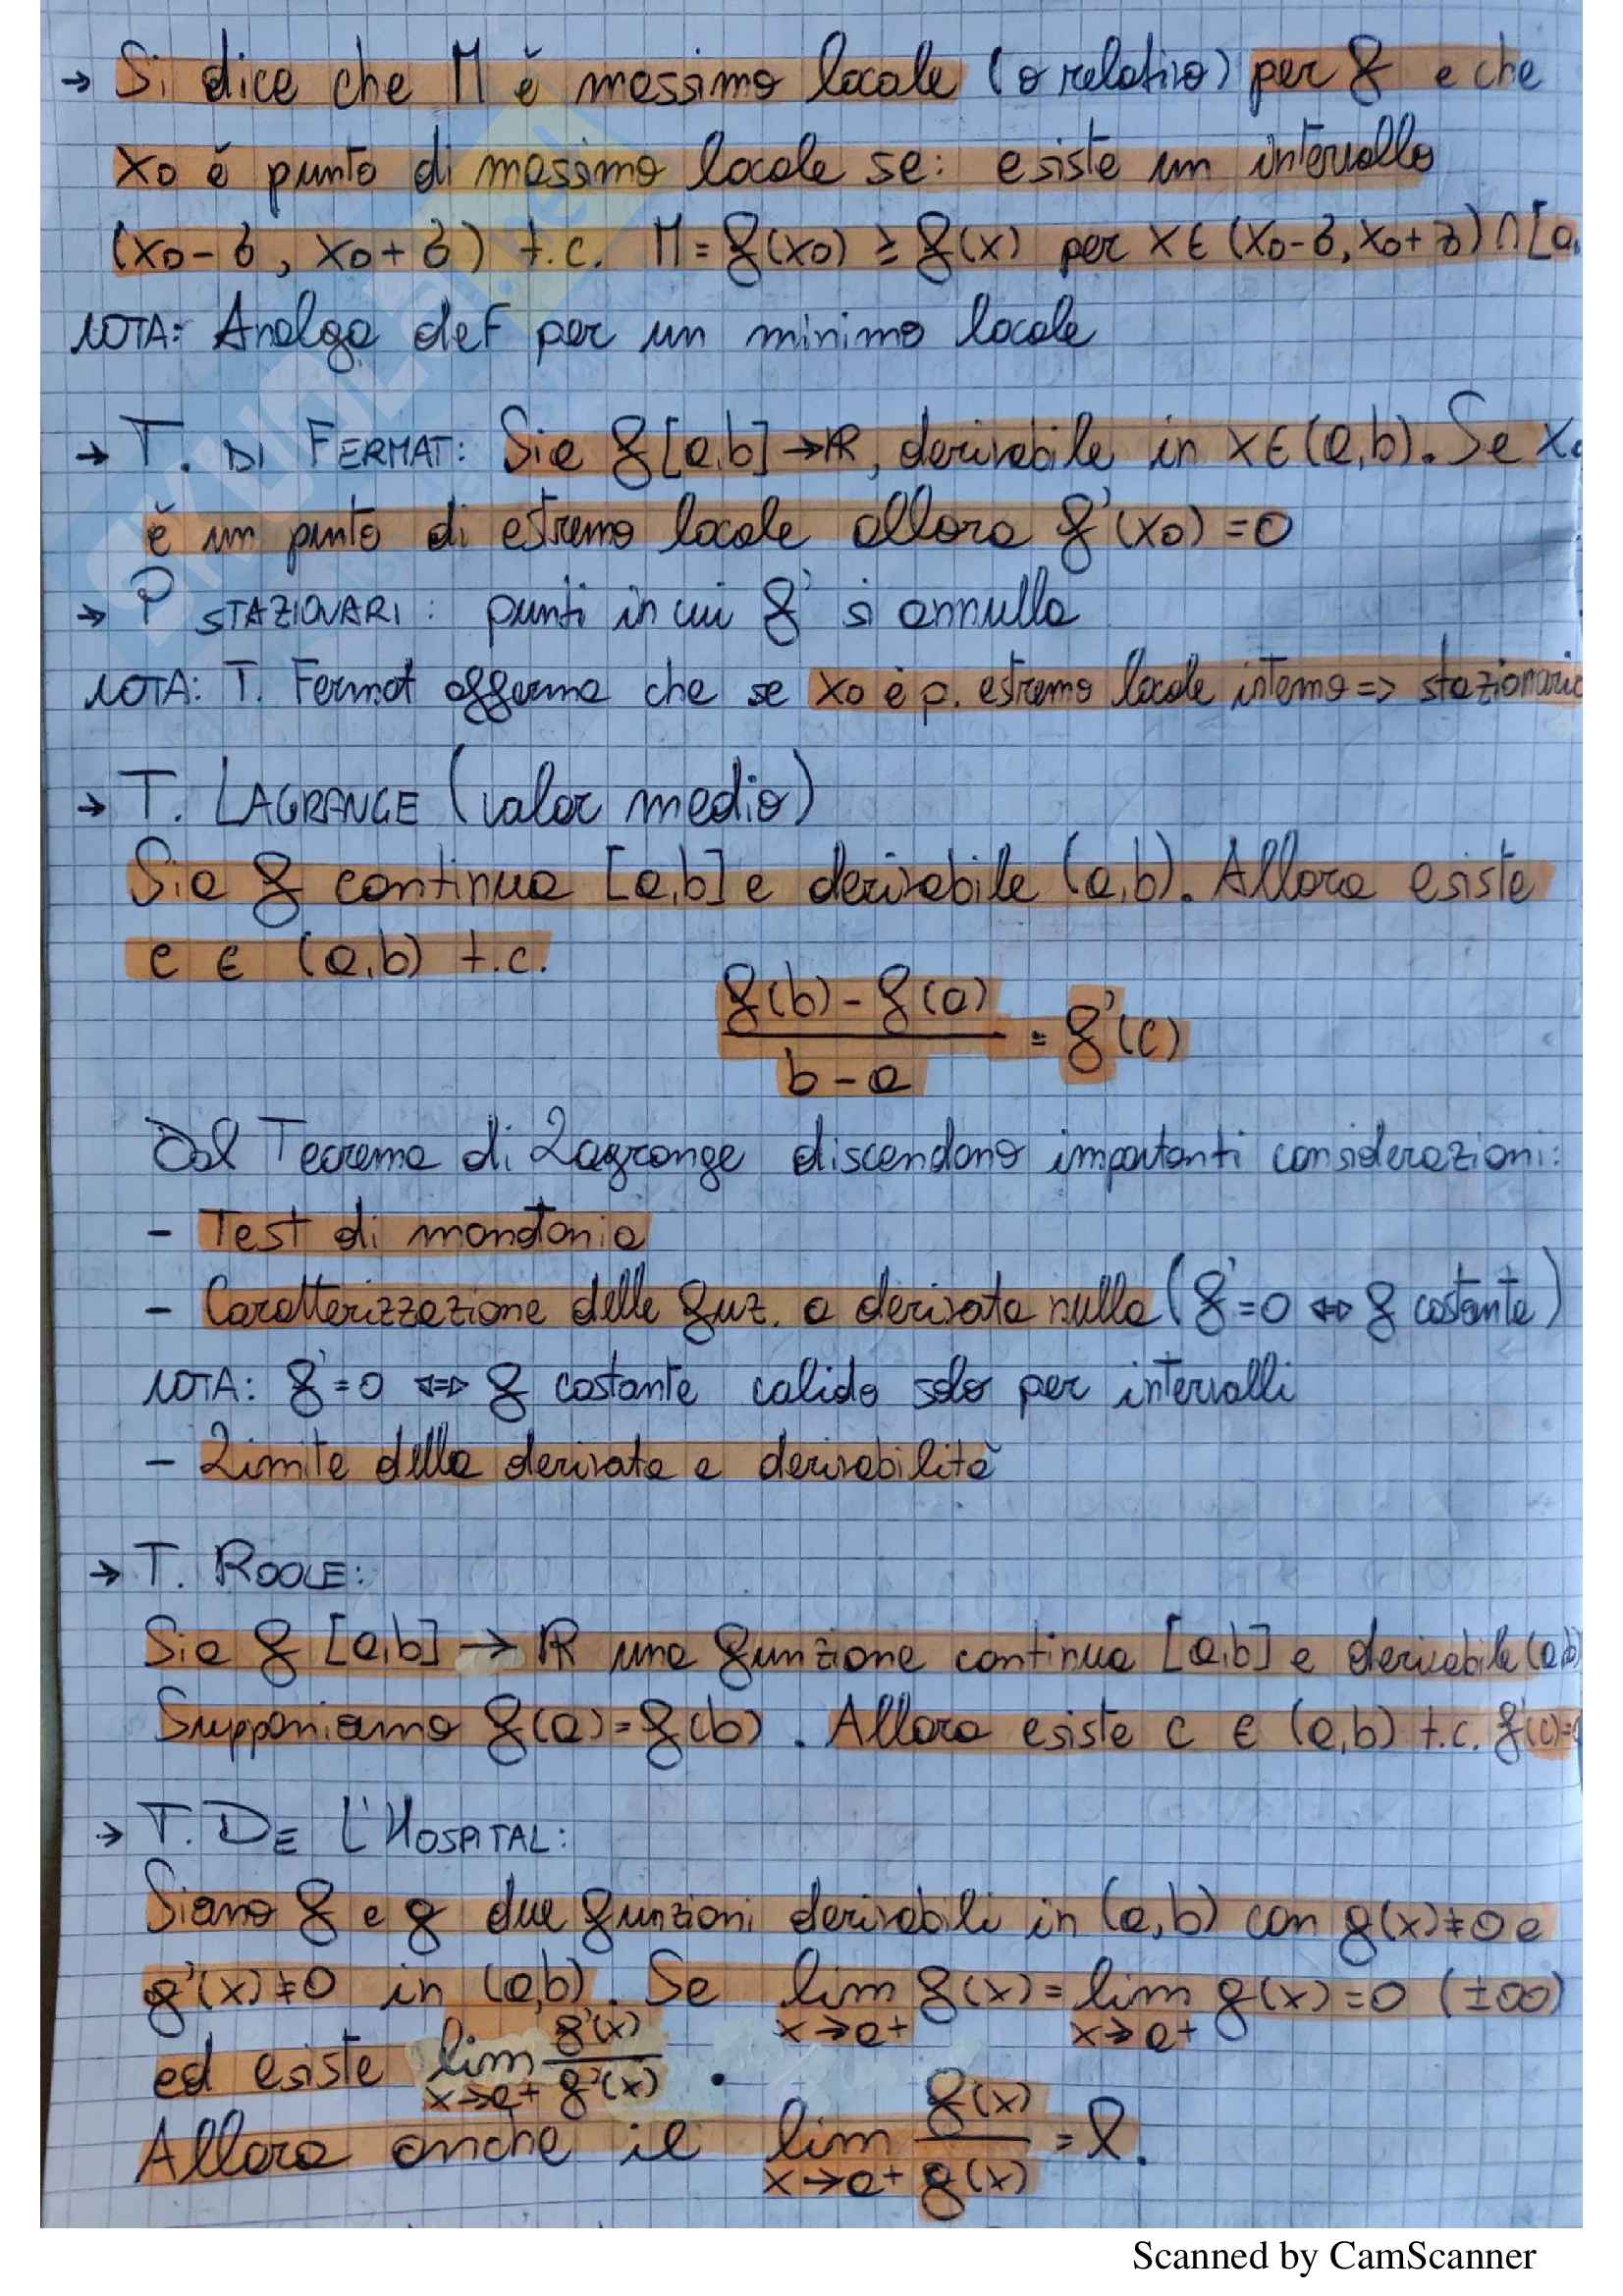 → Si dice che M è massimo locale (o relativo) per f e che
x0 è punto di massimo locale se: esiste un intervallo
(x0-δ, x0+δ) t.c. M=f(x0) ≥ f(x) per x∈(x0-δ,x0+δ)∩[a,
NOTA: Analga def per un minimo locale
→ T. DI FERMAT: Sia f[a,b]→ℝ, derivabile in x∈(a,b). Se x0
è un punto di estremo locale allora f'(x0)=0
→ P STAZIONARI: punti in cui f' si annulla
NOTA: T. Fermat afferma che se x0 è p. estremo locale interno => stazionario
→ T. LAGRANGE (valor medio)
Sia f continua [a,b] e derivabile (a,b). Allora esiste
c ∈ (a,b) t.c.
f(b)-f(a)
/ b-a = f'(c)
Dal Teorema di Lagrange discendono importanti considerazioni:
- Test di monotonia
- Caratterizzazione delle fuz. a derivata nulla (f'=0 ⇔ f costante)
NOTA: f'=0 ⇔ f costante calido solo per intervalli
- Limite della derivata e derivabilità
→ T. ROOLE:
Sia f [a,b] → ℝ una funzione continua [a,b] e derivabile (a,b)
Supponiamo f(a)=f(b). Allora esiste c ∈ (a,b) t.c. f'(c)=
→ T. DE L'HOSPITAL:
Siano f e g due funzioni derivabili in (a,b) con g(x)≠0 e
g'(x)≠0 in (a,b). Se lim x→a+ f(x) = lim x→a+ g(x)=0 (±∞)
ed esiste lim x→a+ f'(x)/g'(x).
Allora anche il lim x→a+ f(x)/g(x) = l.
Scanned by CamScanner